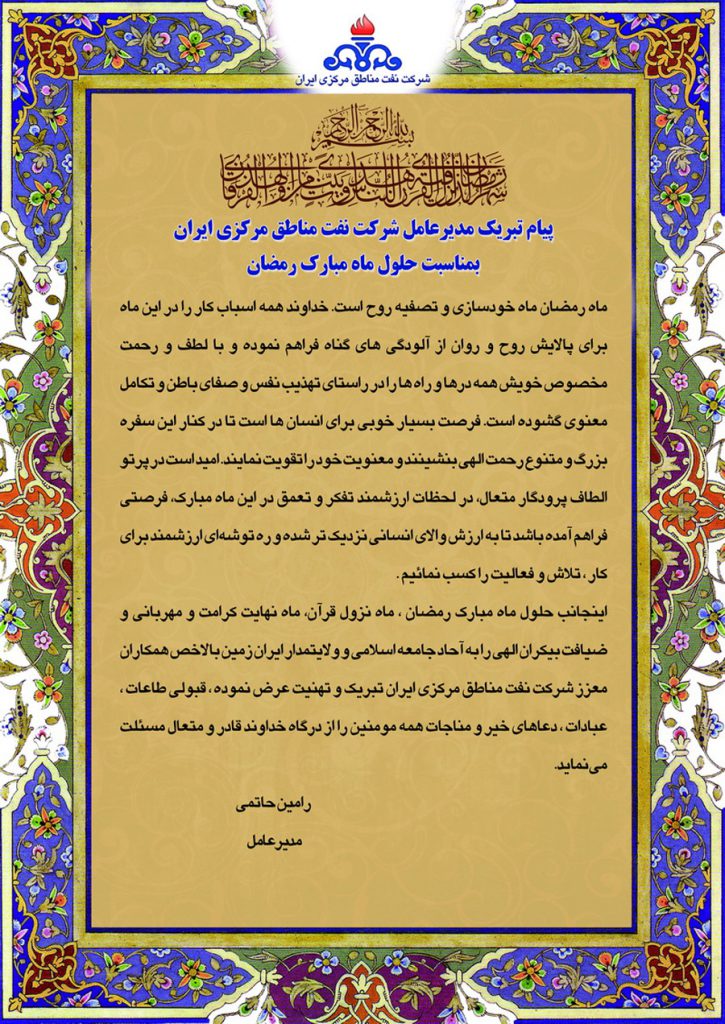 شرکت نفت مناطق مرکزی ایران
بسم الله الرحمن الرحیم
شهر رمضان الذی انزل فیه القرآن هدی للناس و بینات من الهدی و الفرقان
پیام تبریک مدیرعامل شرکت نفت مناطق مرکزی ایران
بمناسبت حلول ماه مبارک رمضان
ماه رمضان ماه خودسازی و تصفیه روح است. خداوند همه اسباب کار را در این ماه
برای پالایش روح و روان از آلودگی های گناه فراهم نموده و با لطف و رحمت
مخصوص خویش همه درها و راه ها را در راستای تهذیب نفس و صفای باطن و تکامل
معنوی گشوده است. فرصت بسیار خوبی برای انسان ها است تا در کنار این سفره
بزرگ و متنوع رحمت الهی بنشینند و معنویت خود را تقویت نمایند. امید است در پرتو
الطاف پرودگار متعال، در لحظات ارزشمند تفکر و تعمق در این ماه مبارک، فرصتی
فراهم آمده باشد تا به ارزش والای انسانی نزدیک تر شده و ره توشه‌ای ارزشمند برای
کار ، تلاش و فعالیت را کسب نمائیم .
اینجانب حلول ماه مبارک رمضان ، ماه نزول قرآن، ماه نهایت کرامت و مهربانی و
ضیافت بیکران الهی را به آحاد جامعه اسلامی و ولایتمدار ایران زمین بالاخص همکاران
معزز شرکت نفت مناطق مرکزی ایران تبریک و تهنیت عرض نموده ، قبولی طاعات ،
عبادات ، دعاهای خیر و مناجات همه مومنین را از درگاه خداوند قادر و متعال مسئلت
می‌نماید.
رامین حاتمی
مدیرعامل